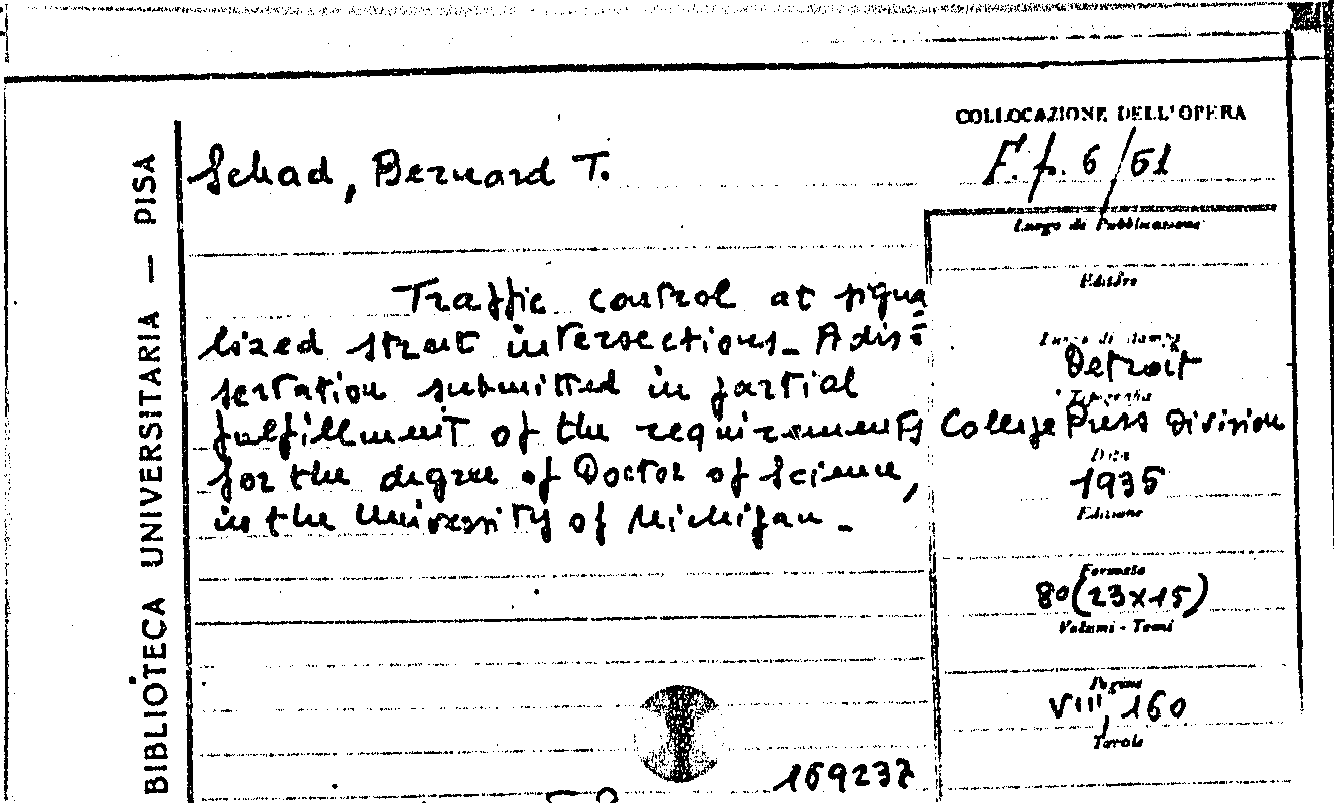 COLLOCAZIONE DELL'OPERA
F. p. 6/51
BIBLIOTECA UNIVERSITARIA — PISA
Schad, Bernard T.
Traffic control at signa
lized street intersections. A dis=
sertation submitted in partial
fulfillment of the requirements
for the degree of Doctor of Science,
in the University of Michigan. -
Luogo di Pubblicazione
Editore
Luogo di stampa
Detroit
Tipografia
College Press Division
Data
1935
Edizione
Formato
8°(23x15)
Volumi - Tomi
Pagine
VIII, 160
Tavole
169237